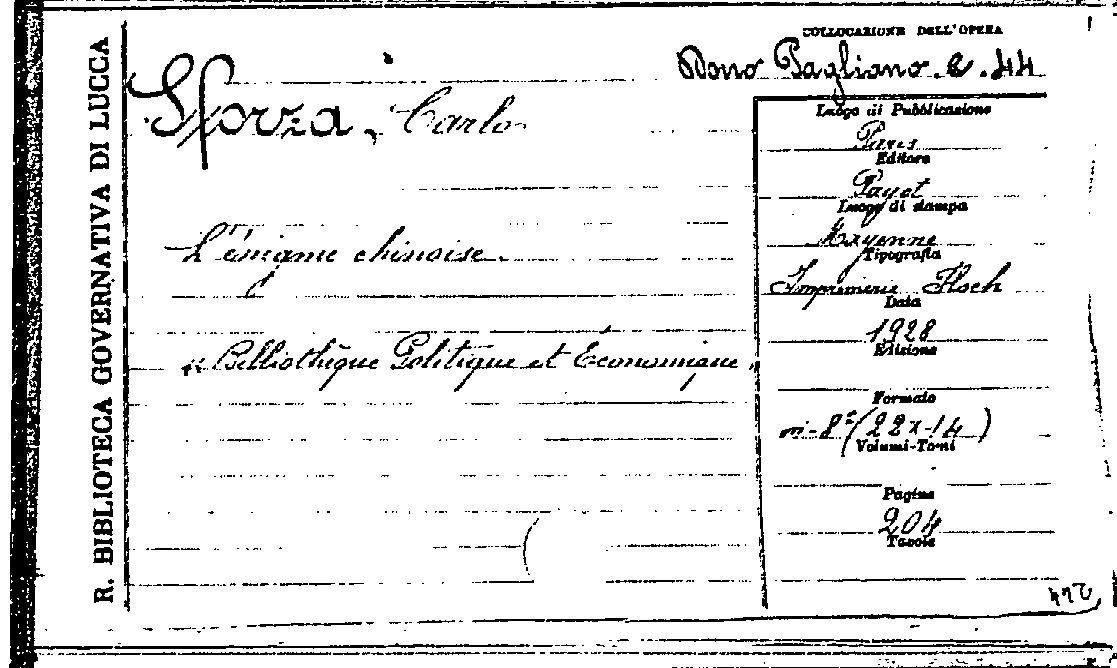 R. BIBLIOTECA GOVERNATIVA DI LUCCA
COLLOCAZIONE DELL'OPERA
Dono Pagliano. 2. 44
Sforza, Carlo
L'énigme chinoise.
"Bibliothèque Politique et Économique"
Luogo di Pubblicazione
Paris
Editore
Payot
Luogo di stampa
Mayenne
Tipografia
Imprimerie Floch
Data
1928
Edizione
Formato
in-8° (22x14)
Volumi-Tomi
Pagine
204
Tavole